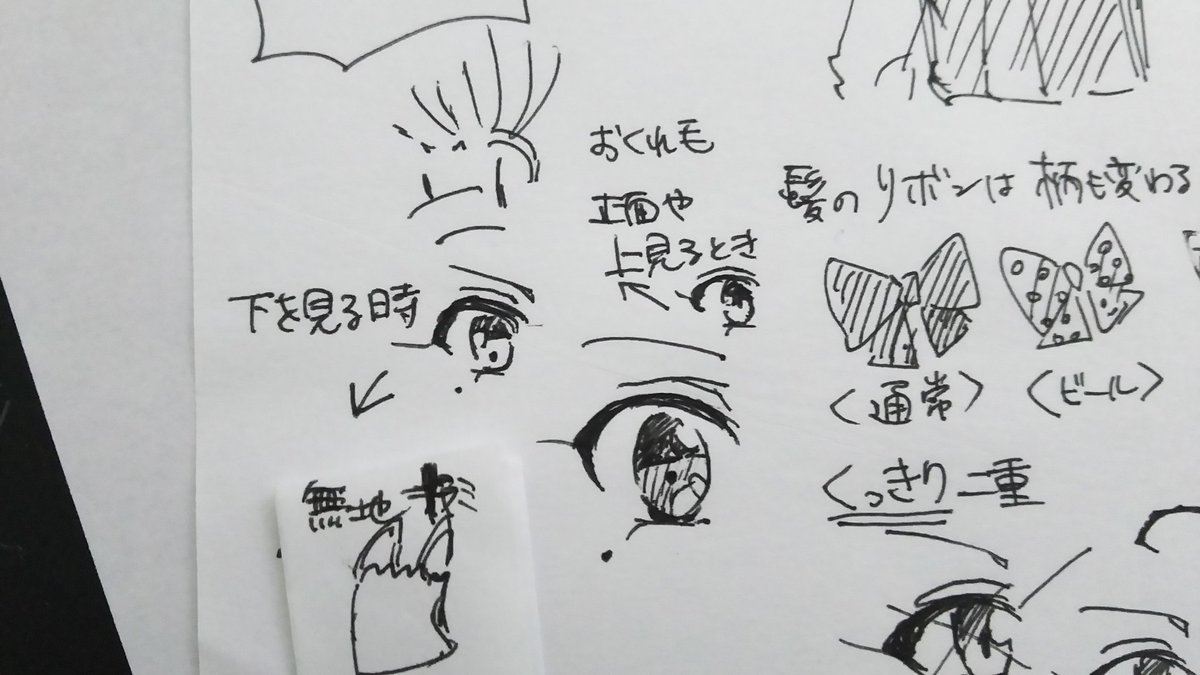 おくれ毛
正面や
上見るとき
下を見る時
無地
髪のリボンは柄も変わる
〈通常〉
〈ビール〉
くっきり二重